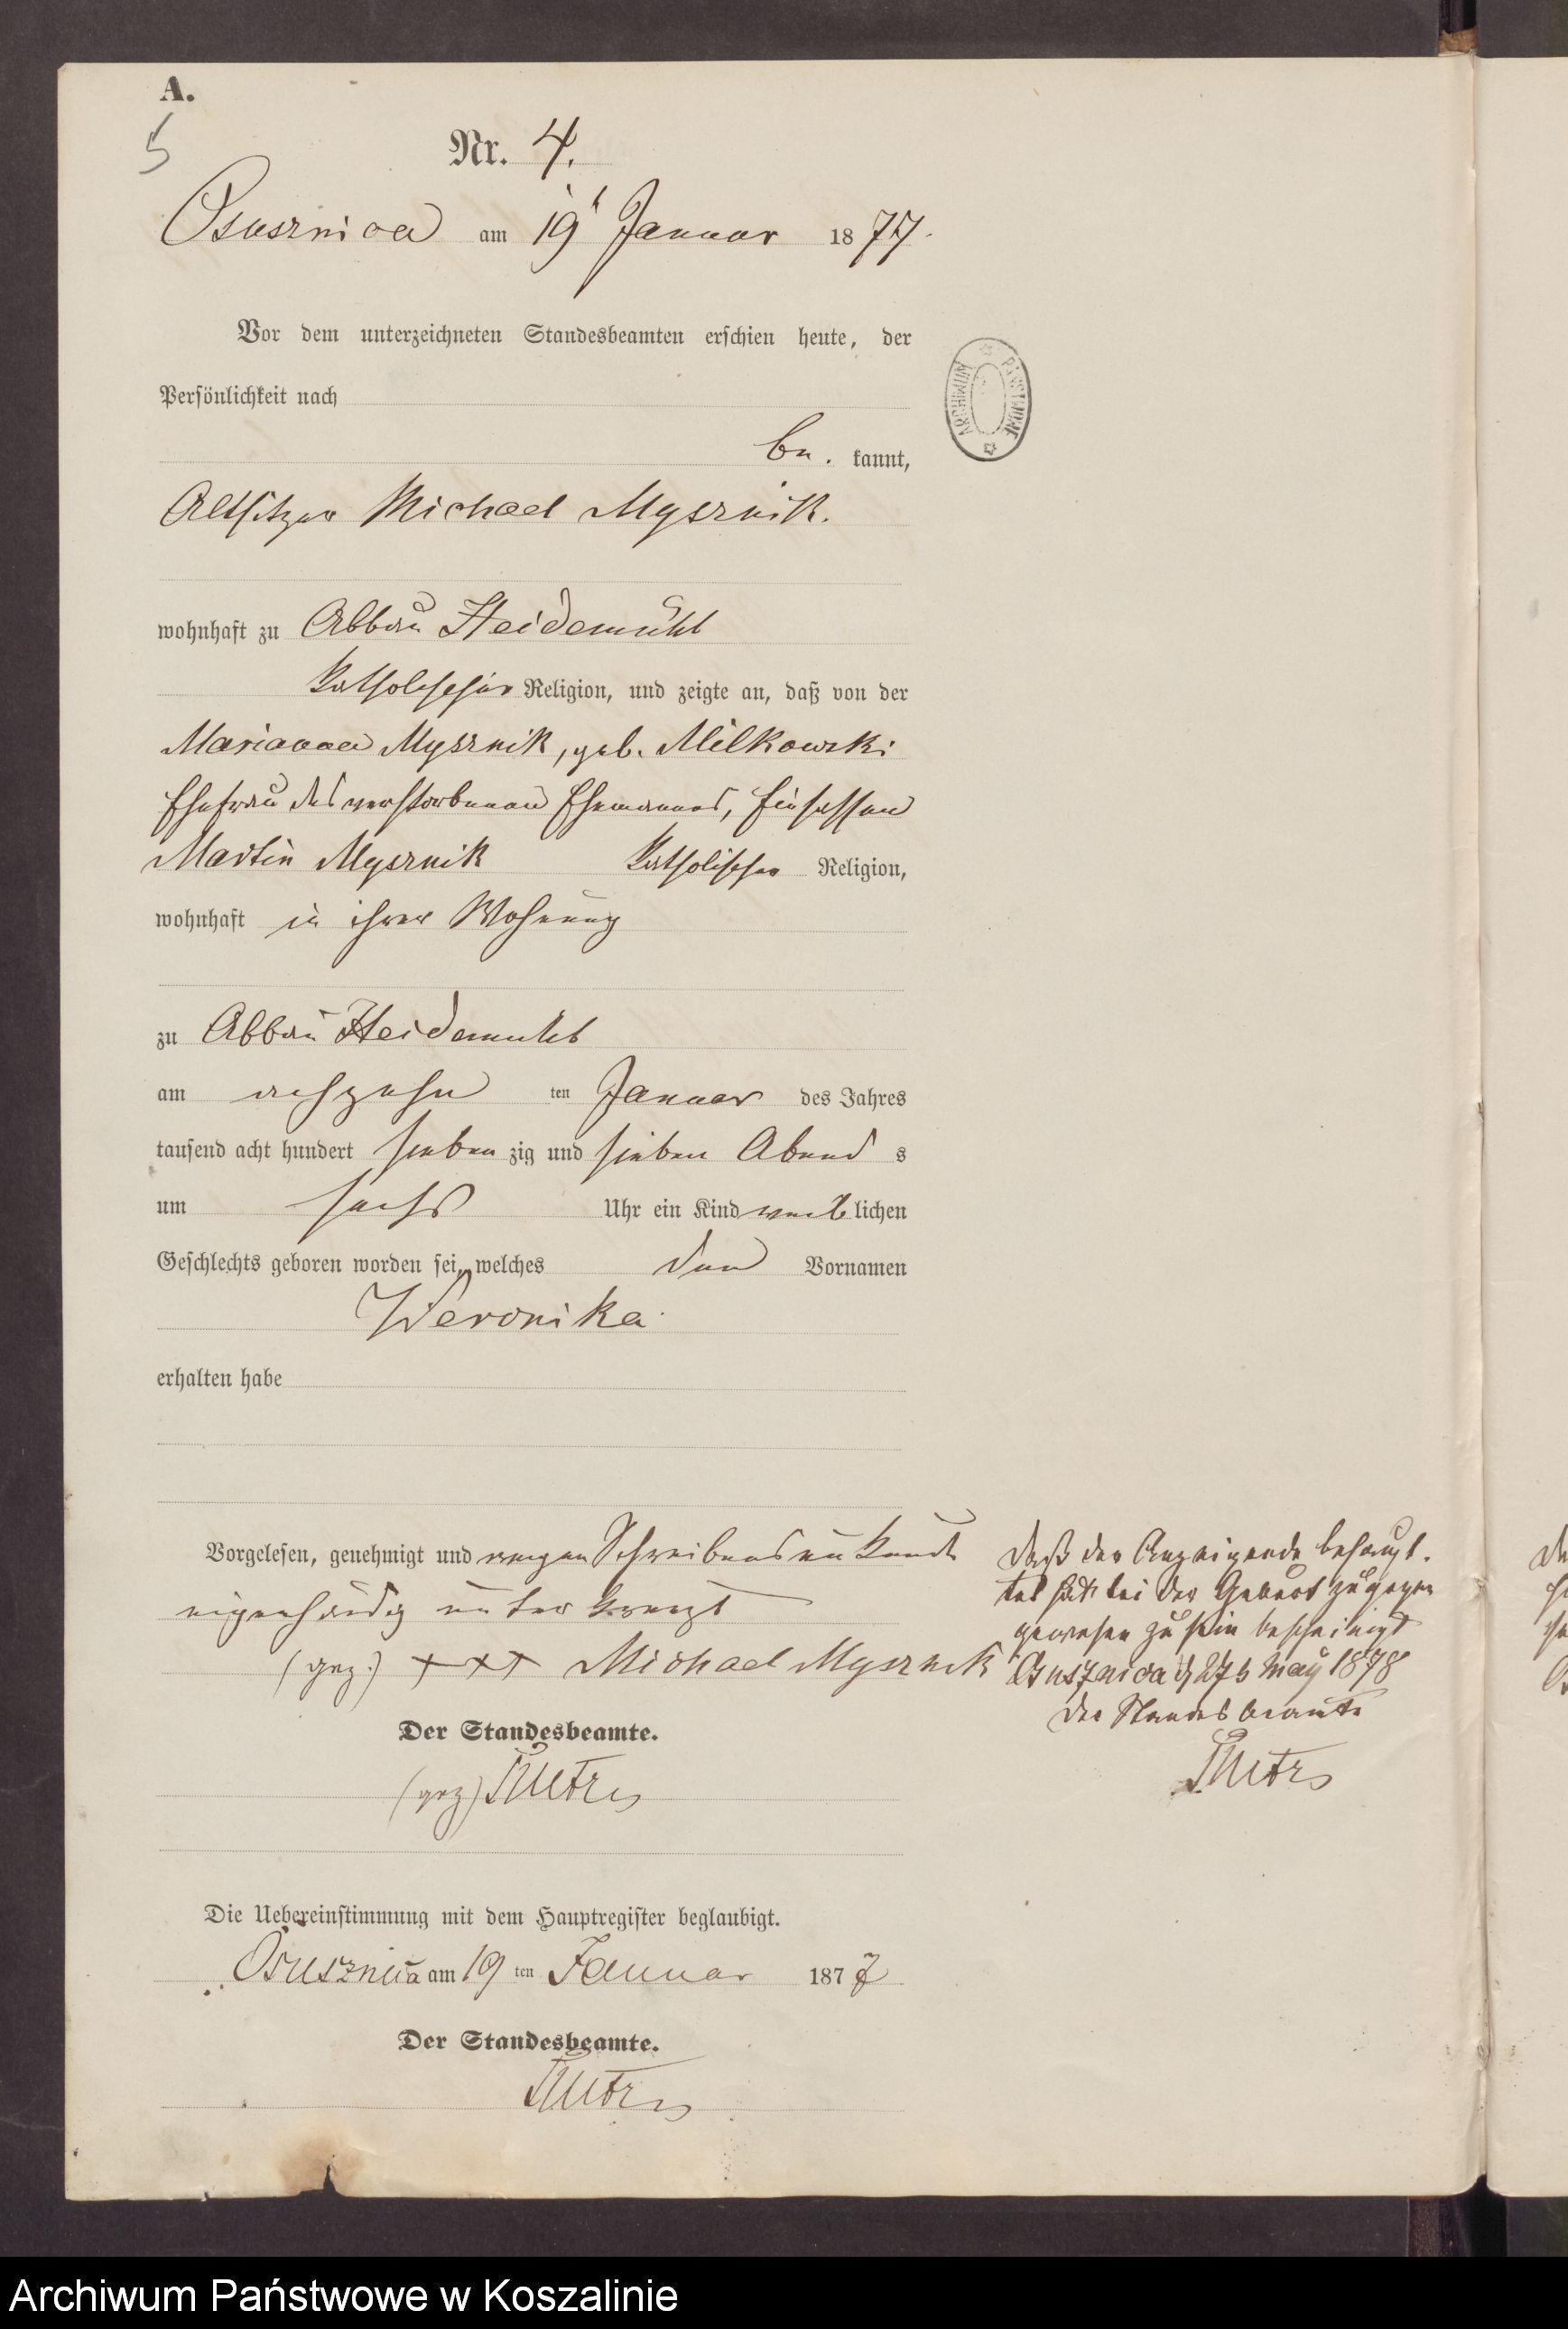 A.
5
Nr. 4.
Osusznica am 19t Januar 1877.
Vor dem unterzeichneten Standesbeamten erschien heute, der
Persönlichkeit nach
be. kannt,
Altsitzer Michael Mysznik.
wohnhaft zu Abbau Heidemühl
katholischer Religion, und zeigte an, daß von der
Marianna Mysznik, geb. Milkowski
Ehefrau des verstorbenen Ehemannes, Einsassen
Martin Mysznik katholischer Religion,
wohnhaft in ihrer Wohnung
zu Abbau Heidemuhl
am achzehn ten Januar des Jahres
tausend acht hundert sieben zig und sieben Abend s
um sechs Uhr ein Kind weiblichen
Geschlechts geboren worden sei, welches den Vornamen
Weronika
erhalten habe
Vorgelesen, genehmigt und wegen Schreibensunkunde
eigenhändig unterkreuzt
(gez.) +++ Michael Mysznik
Der Standesbeamte.
(gez)
Die Uebereinstimmung mit dem Hauptregister beglaubigt.
Osusznica am 19 ten Januar 1877
Der Standesbeamte.
Daß der Anzeigende behaupt.
tet hat bei der Geburt zugegen
gewesen zu sein bescheinigt
Osusznica d 27t May 1878
Der Standesbeamte
ARCHIWUM PAŃSTWOWE
Archiwum Państwowe w Koszalinie